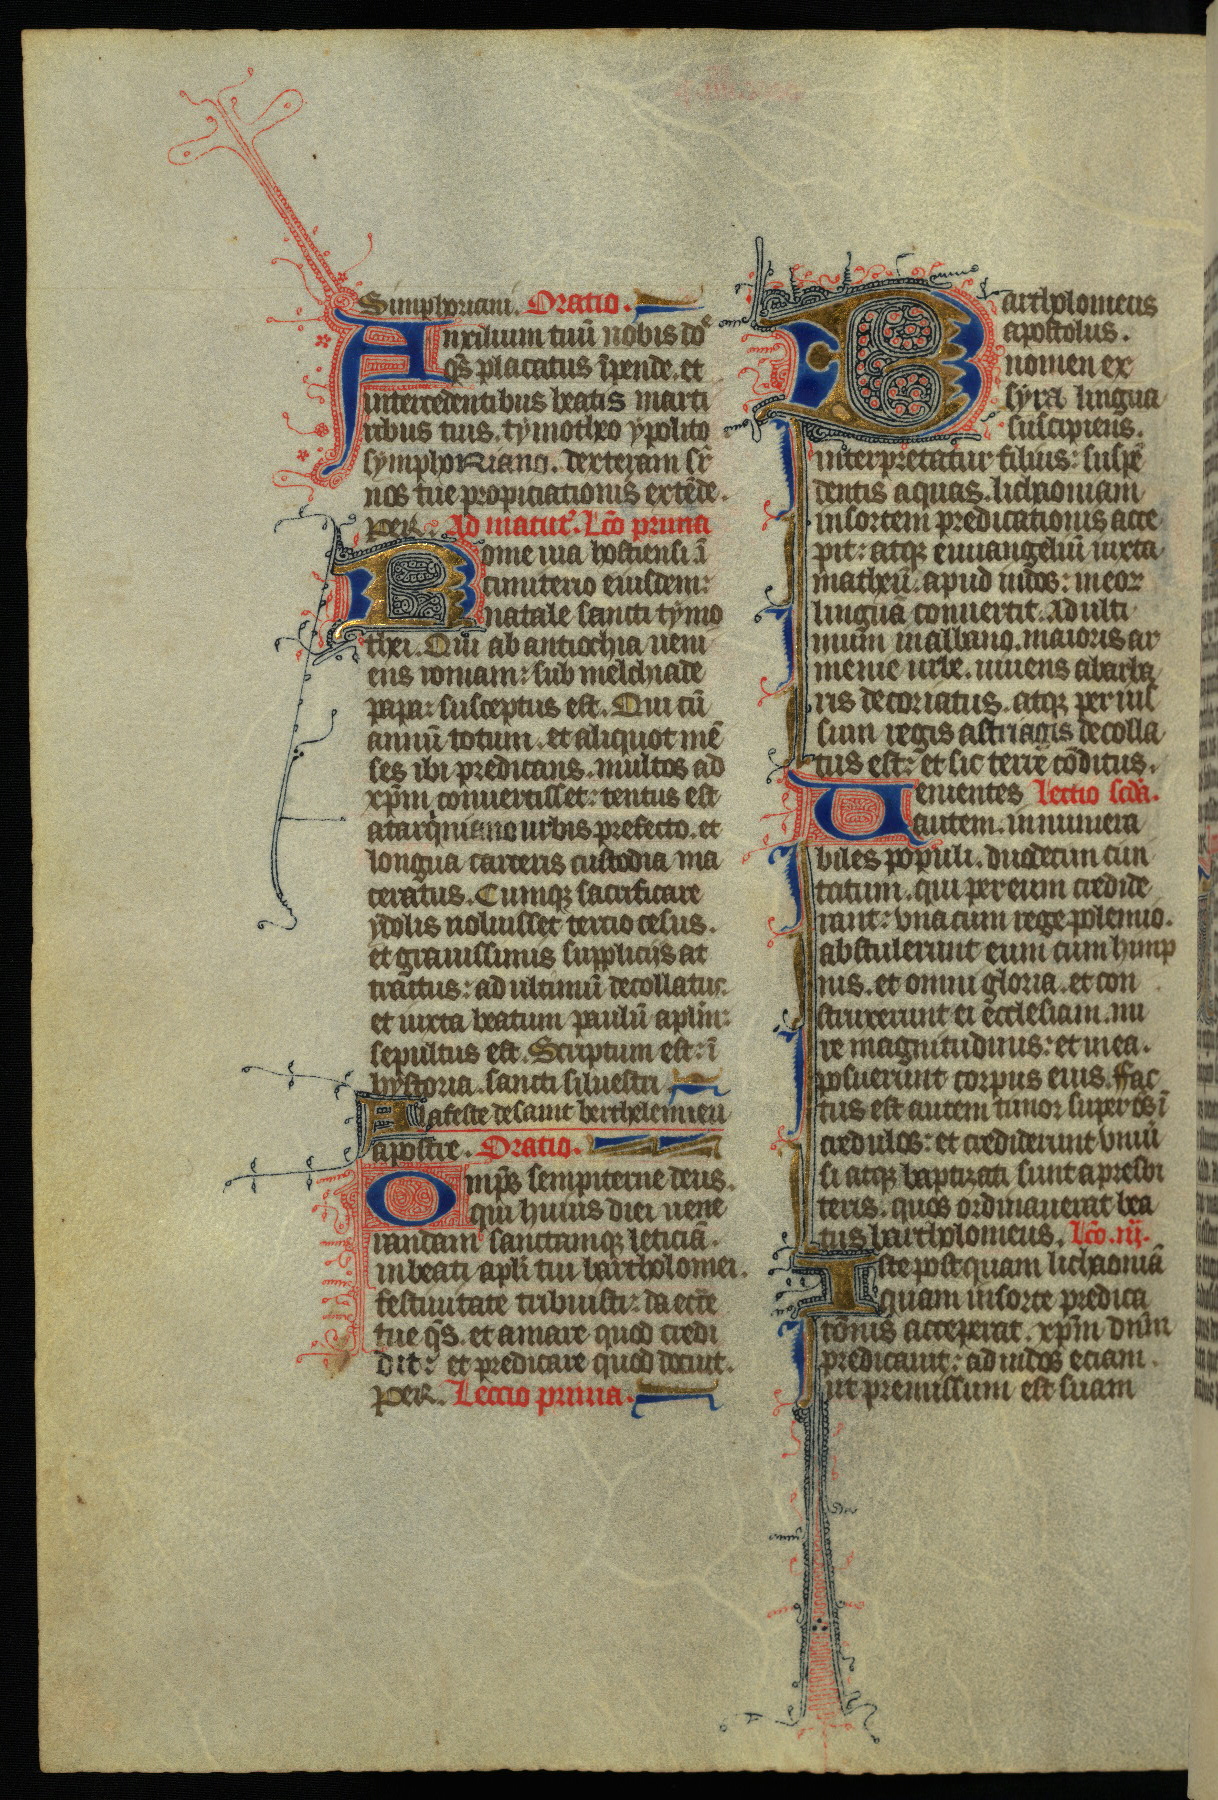 Simphoriani. Oratio.
Auxilium tuū nobis dōe
qs̄ placatus īpende. et
intercedentibus beatis marti
ribus tuis. tymotheo ypolito
symphoriano. dexteram sr̄
nos tue propiciationis extēde.
PER. Ad matut'. Lc̄o prima
Rome uia hostiensi. ī
cimiterio eiusdem:
natale sancti tymo
thei. Qui ab antiochia ueni
ens romam: sub melchiade
papa: susceptus est. Qui cū
annū totum. et aliquot mē
ses ibi predicans. multos ad
xp̄m conuertisset: tentus est
a tarquiniano urbis prefecto. et
longua carceris custodia ma
ceratus. Cumqꝫ sacrificare
ydolis noluisset tercio cesus.
et grauissimis supplicijs at
tractus: ad ultimū decollatur
et iuxta beatum paulū aplm̄:
sepultus est. Scriptum est: ī
hystoria. sancti siluestri
A la feste de saint berthelemieu
apostre. Oratio.
Omp̄s sempiterne deus.
qui huius diei uene
randam sanctamqꝫ leticiā.
in beati apl̄i tui bartholomei.
festiuitate tribuisti: da ecc̄e
tue qs̄. et amare quod credi
dit: et predicare quod docuit.
PER. Leccio prima.
Bartholomeus
apostolus.
nomen ex
syra lingua
suscipiens.
interpretatur filius: suspē
dentis aquas. lichaoniam
in sortem predicationis acce
pit: atqꝫ euuangeliū iuxta
matheū. apud indos: in eor
lingua conuertit. Ad ulti
mum in albano. maioris ar
menie urbe. uiuens a barba
ris decoriatus. atqꝫ per ius
sum regis astriagis decolla
tus est: et sic terre cōditus.
Uenientes Lectio scd̄a.
autem. innumera
biles populi. duodecim ciui
tatum. qui per eum credide
rant: vna cum rege polemio.
abstulerunt eum cum himp
nis. et omni gloria. et con
struxerunt ei ecclesiam. mi
re magnitudinis: et in ea.
posuerunt corpus eius. Fac
tus est autem timor super os̄ ī
credulos: et crediderunt vniū
si atqꝫ baptizati sunt a presbi
teris. quos ordinauerat bea
tus bartholomeus. Lc̄o. iij.
Iste postquam lichaoniā
quam in sorte predica
tōnis acceperat. xp̄m dn̄m
predicauit: ad indos eciam.
ut premissum est suam